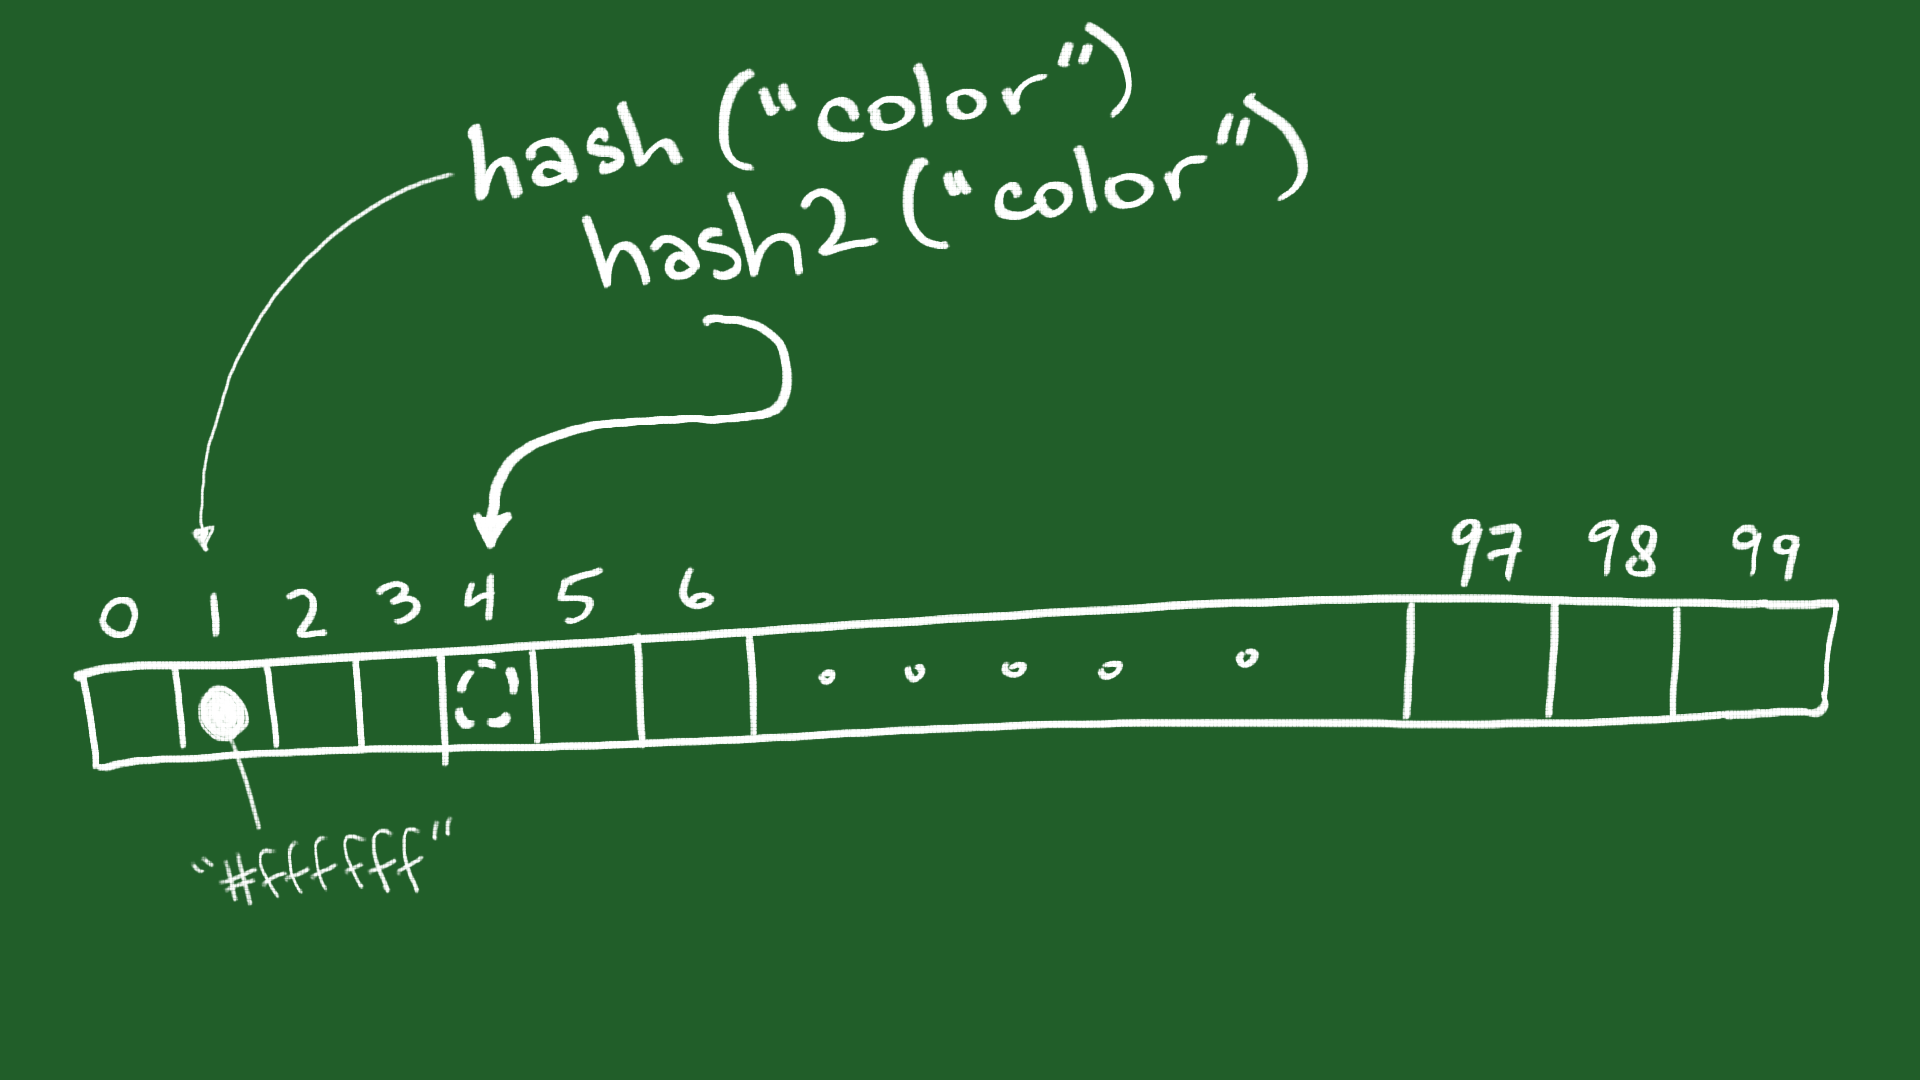 hash ("color")
hash2 ("color")
0 1 2 3 4 5 6 97 98 99
"#ffffff"